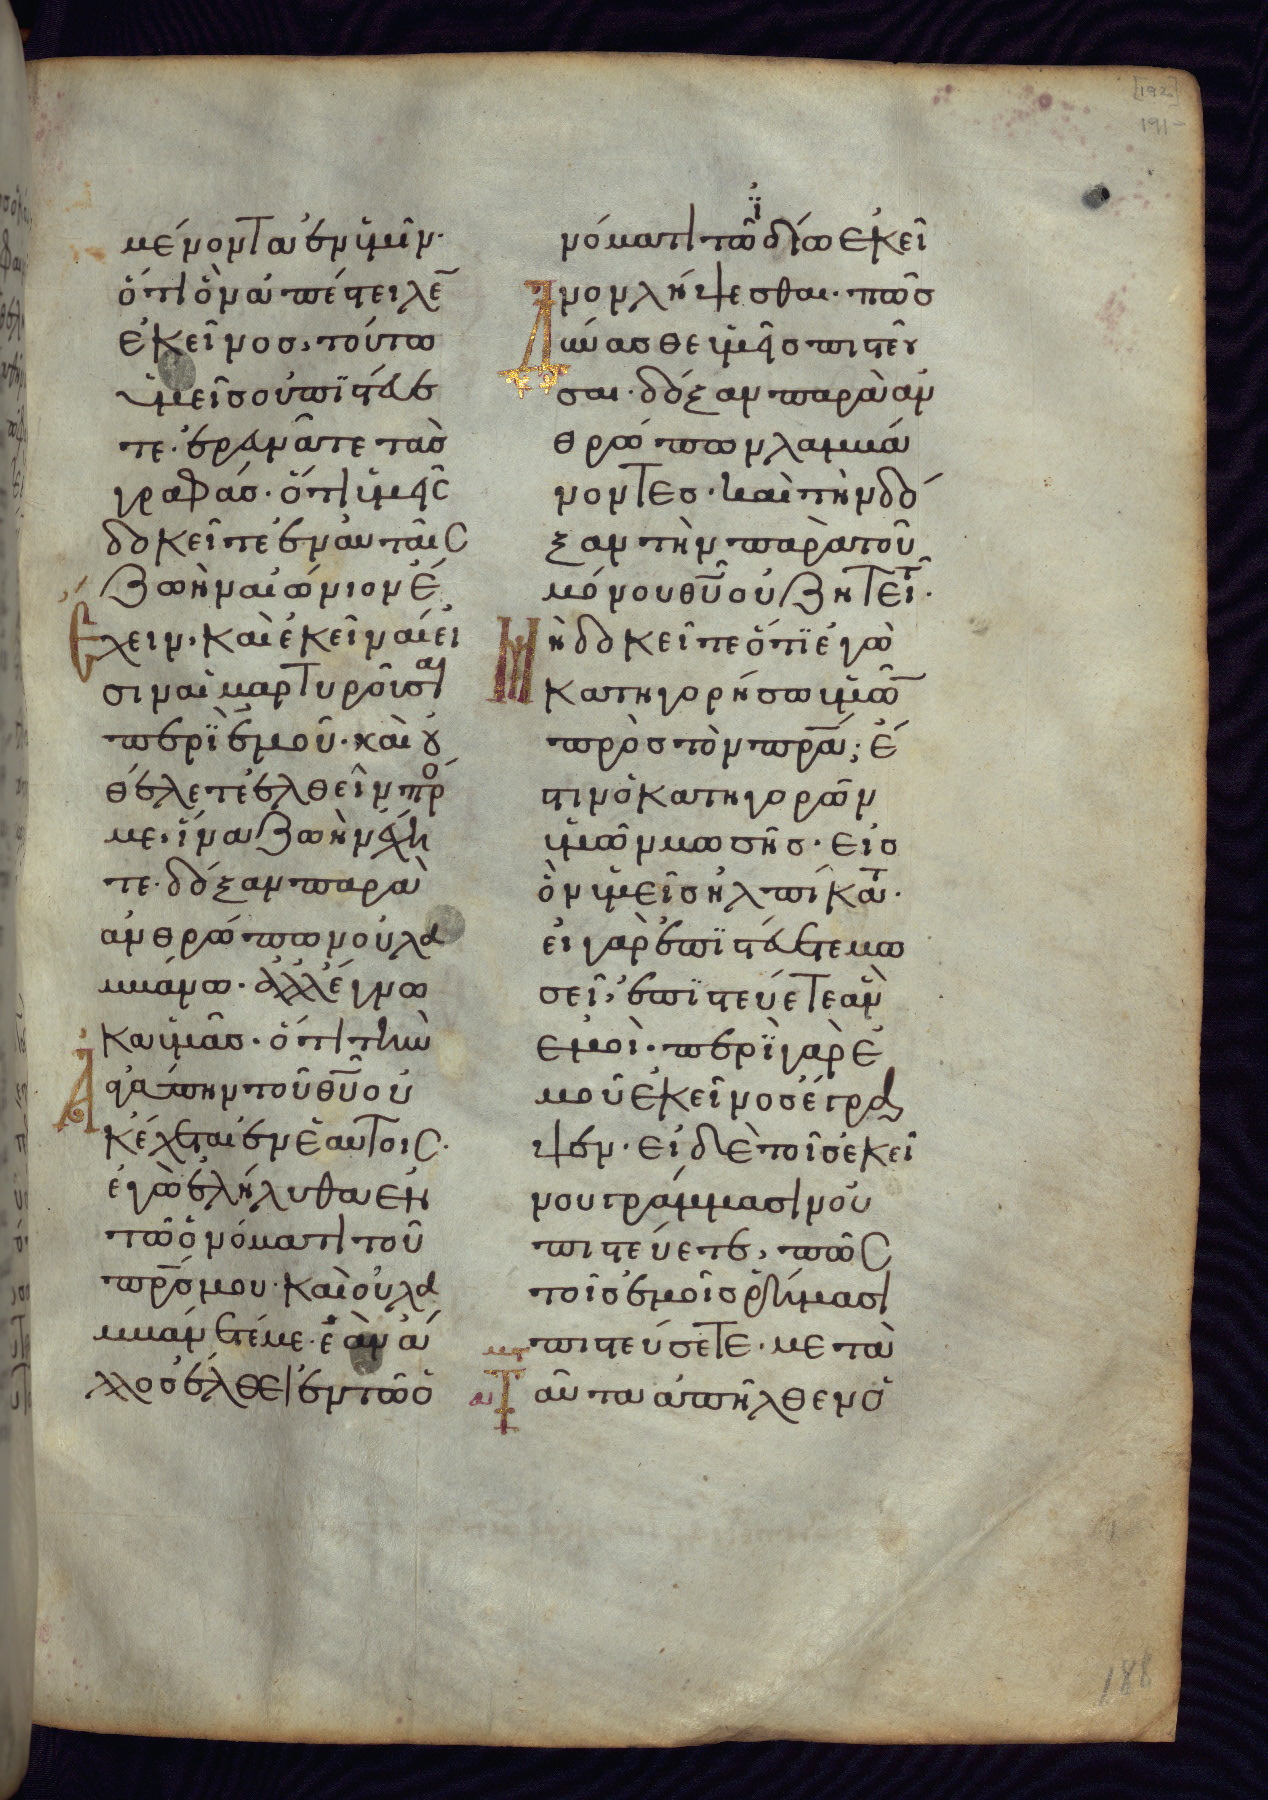 [192]
191
μένοντα ἐν ὑμῖν·
ὅτι ὃν ἀπέστειλε̅
ἐκεῖνος, τούτω
ὑμεῖς οὐ πιστεύε
τε· ἐρευνᾶτε τὰς
γραφάς· ὅτι ὑμεῖς
δοκεῖτε ἐν αὐταῖς
ζωὴν αἰώνιον ἔ
χειν· καὶ ἐκεῖναί εἰ
σιν αἱ μαρτυροῦσαι
περὶ ἐμοῦ· καὶ οὐ
θέλετε ἐλθεῖν πρό
με, ἵνα ζωὴν ἔχη
τε· δόξαν παρὰ
ἀνθρώπων οὐ λα
μβάνω· ἀλλ' ἔγνω
κα ὑμᾶς· ὅτι τὴν
ἀγάπην τοῦ θυ̅ οὐ
κ ἔχεται ἐν ἑαυτοῖς·
ἐγὼ ἐλήλυθα ἐν
τῶ ὀνόματι τοῦ
πρ̅ς μου· καὶ οὐ λα
μβάνετέ με· ἐὰν ἄ
λλος ἔλθει ἐν τῶ ὀ
νόματι τῶ ἰδίω ἐκεῖ
νον λήψεσθαι· πῶς
δύνασθε ὑμεῖς πιστεῦ
σαι· δόξαν παρὰ ἀν
θρώπων λαμβά
νοντες· καὶ τὴν δό
ξαν τὴν παρὰ τοῦ
μόνου θυ̅ οὐ ζητεῖτ·
μὴ δοκεῖτε ὅτι ἐγὼ
κατηγορήσω ὑμῶ̅
πρὸς τὸν πρ̅α; ἔ
στιν ὁ κατηγορῶν
ὑμῶν μωσῆς· εἰς
ὃν ὑμεῖς ἠλπίκατ·
εἰ γὰρ ἐπιστεύετε μω
σεῖ, ἐπιστεύετε ἂν
ἐμοὶ· περὶ γὰρ ἐ
μοῦ ἐκεῖνος ἔγρα
ψεν· εἰ δὲ τοῖς ἐκεί
νου γράμμασι μου
πιστεύετε, πῶς
τοῖς ἐμοῖς ῥήμασι
πιστεύσετε· μετὰ
ταῦτα ἀπῆλθεν ὁ
188